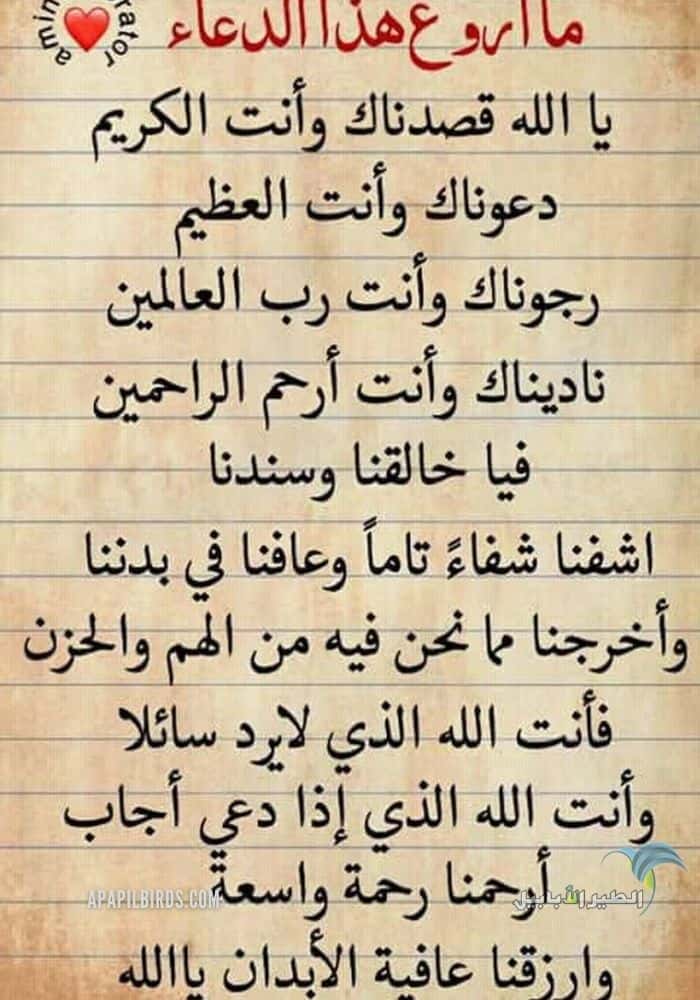 ما أروع هذا الدعاء
يا الله قصدناك وأنت الكريم
دعوناك وأنت العظيم
رجوناك وأنت رب العالمين
ناديناك وأنت أرحم الراحمين
فيا خالقنا وسندنا
اشفنا شفاءً تاماً وعافنا في بدننا
وأخرجنا مما نحن فيه من الهم والحزن
فأنت الله الذي لايرد سائلا
وأنت الله الذي إذا دعي أجاب
أرحمنا رحمة واسعة
APAPILBIRDS.COM
الطير الأبابيل
وارزقنا عافية الأبدان ياالله